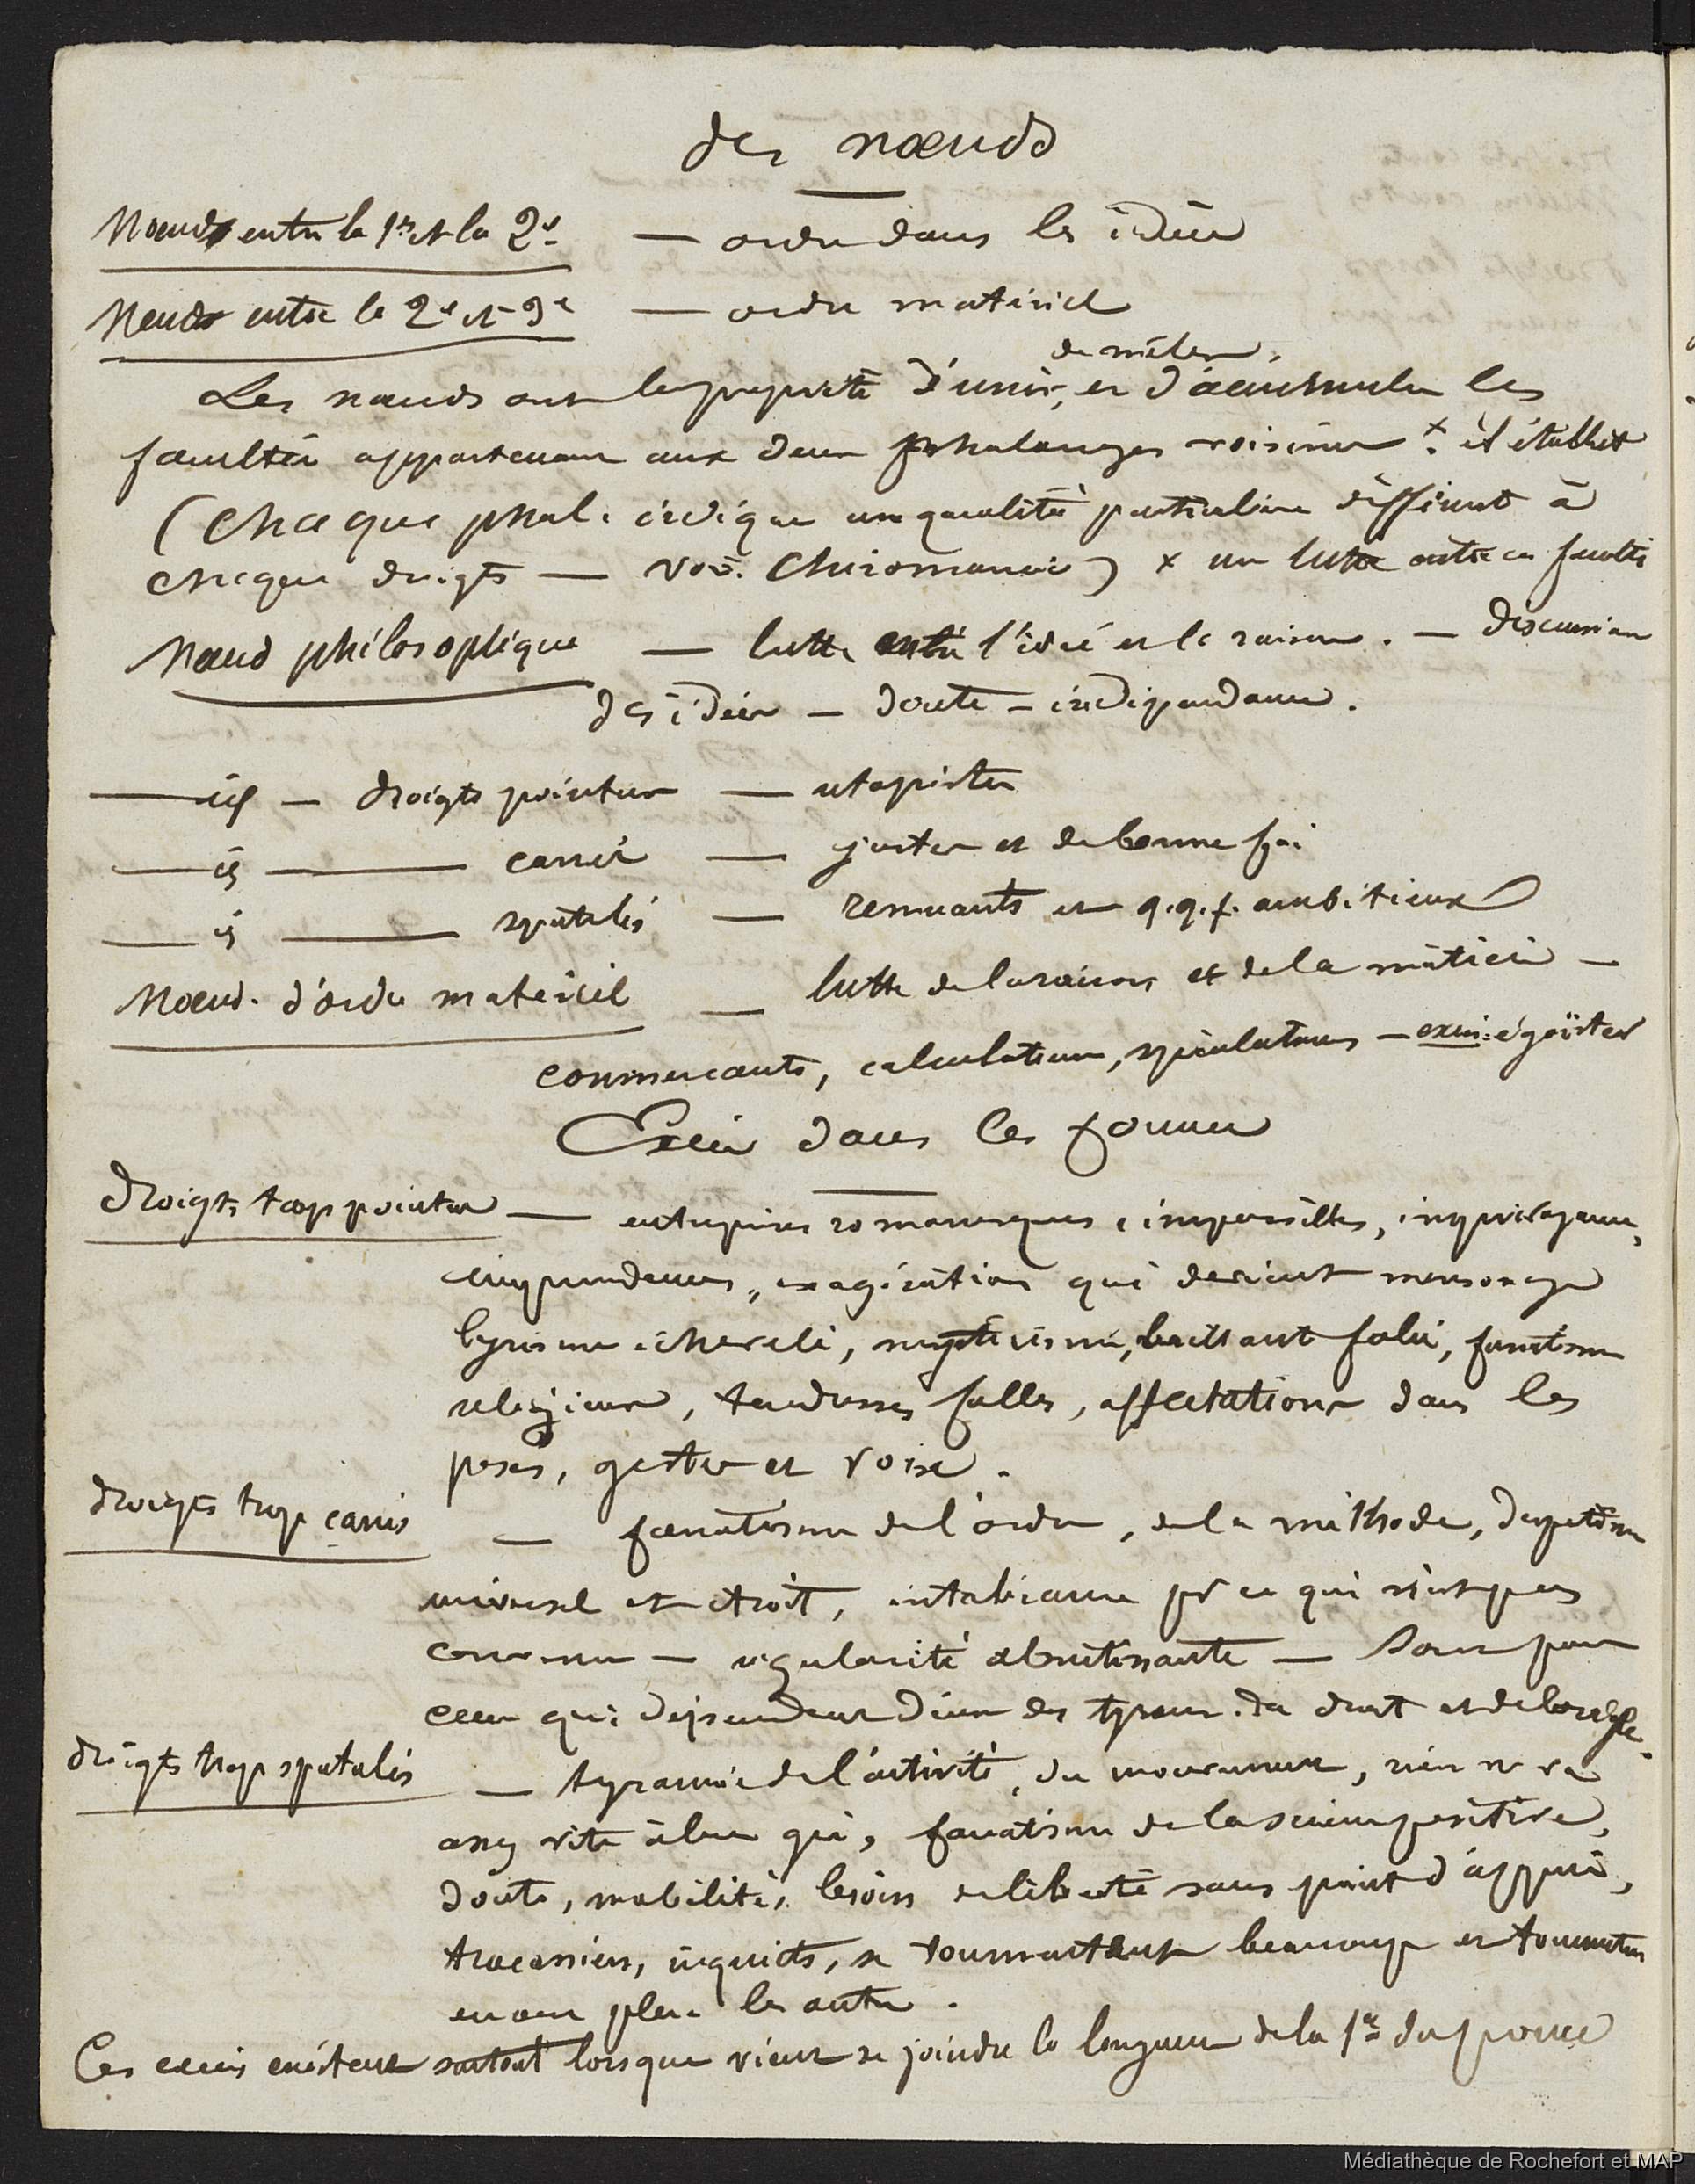 des nœuds
Nœuds entre la 1re et la 2e — ordre dans les idées
Nœuds entre la 2e et 3e — ordre matériel
de mêler,
Les nœuds ont la propriété d'unir, et d'accumuler les
facultés appartenant aux deux phalanges voisines x. il établit
(Chaque phal. indique une qualité particulière différent à
chaque doigts — voir Chiromancie) x une lutte entre ces facultés
Nœud philosophique — lutte entre l'idée et la raison. — Discussion
des idées — doute — indépendance.
— id — doigts pointus — utopistes
— id — carrés — justes et de bonne foi
— id — spatulés — remuants et q.q.f. ambitieux
Nœud. d'ordre matériel — lutte de la raison et de la matière —
commerçants, calculateurs, spéculateurs — excès: égoïstes
Excès dans les formes
doigts trop pointus — entreprises romanesques, impossibles, imprévoyance,
imprudences, exagération qui devient mensonge
lyrisme échevelé, mysticisme, folie, fanatisme
religieux, tendresses folles, affectations dans les
poses, gestes et voix.
doigts trop carrés — fanatisme de l'ordre, de la méthode, despotisme
universel et étroit, intolérance pr ce qui n'est pas
convenu — régularité abrutissante — pour
ceux qui dépendent d'eux des tyrans du droit et de la règle.
doigts trop spatulés — tyrannie de l'activité, du mouvement, rien ne va
assez vite à leur gré, fanatisme de la science positive,
doute, mobilité, besoin de liberté sans point d'appui,
tracassiers, inquiets, se tourmentent beaucoup et tourmentent
encore plus les autres.
Ces excès existent surtout lorsque vient se joindre la longueur de la 1re du pouce
Médiathèque de Rochefort et MAP